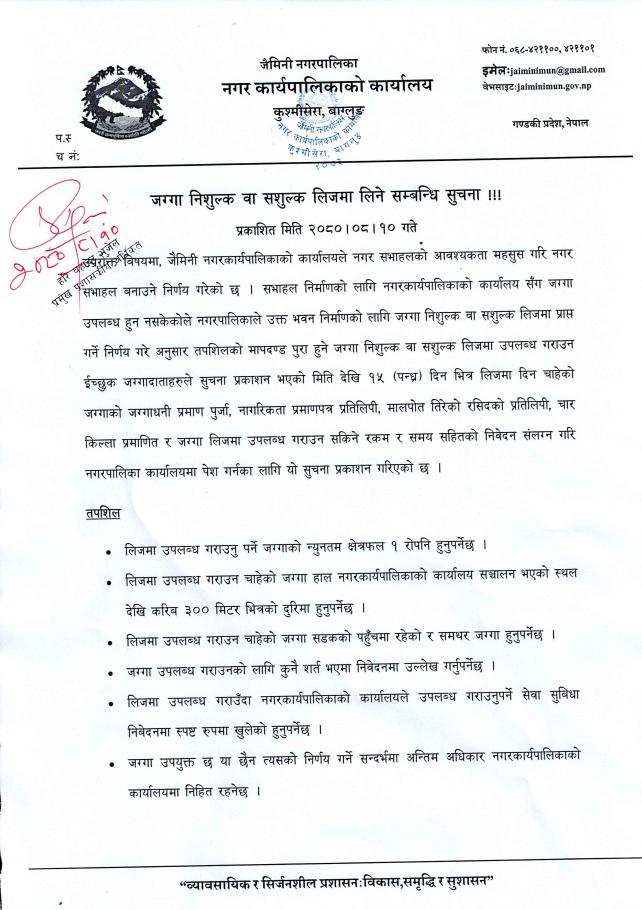 फोन नं. ०६८-४२११००, ४२११०१
जैमिनी नगरपालिका
नगर कार्यपालिकाको कार्यालय
इमेलः jaiminimun@gmail.com
वेभसाइटः jaiminimun.gov.np
कुश्मीसेरा, बाग्लुङ
गण्डकी प्रदेश, नेपाल
प.स
च नं:
जग्गा निशुल्क वा सशुल्क लिजमा लिने सम्बन्धि सुचना !!!
प्रकाशित मिति २०८०।०८।१० गते
२०८०।८।१०
प्रमुख प्रशासकीय अधिकृत
उपरोक्त विषयमा, जैमिनी नगरकार्यपालिकाको कार्यालयले नगर सभाहलको आवश्यकता महसुस गरि नगर
सभाहल बनाउने निर्णय गरेको छ । सभाहल निर्माणको लागि नगरकार्यपालिकाको कार्यालय सँग जग्गा
उपलब्ध हुन नसकेकोले नगरपालिकाले उक्त भवन निर्माणको लागि जग्गा निशुल्क वा सशुल्क लिजमा प्राप्त
गर्ने निर्णय गरे अनुसार तपशिलको मापदण्ड पुरा हुने जग्गा निशुल्क वा सशुल्क लिजमा उपलब्ध गराउन
ईच्छुक जग्गादाताहरुले सुचना प्रकाशन भएको मिति देखि १५ (पन्ध्र) दिन भित्र लिजमा दिन चाहेको
जग्गाको जग्गाधनी प्रमाण पुर्जा, नागरिकता प्रमाणपत्र प्रतिलिपी, मालपोत तिरेको रसिदको प्रतिलिपी, चार
किल्ला प्रमाणित र जग्गा लिजमा उपलब्ध गराउन सकिने रकम र समय सहितको निवेदन संलग्न गरि
नगरपालिका कार्यालयमा पेश गर्नका लागि यो सुचना प्रकाशन गरिएको छ ।
तपशिल
• लिजमा उपलब्ध गराउनु पर्ने जग्गाको न्युनतम क्षेत्रफल १ रोपनि हुनुपर्नेछ ।
• लिजमा उपलब्ध गराउन चाहेको जग्गा हाल नगरकार्यपालिकाको कार्यालय सञ्चालन भएको स्थल
देखि करिब ३०० मिटर भित्रको दुरिमा हुनुपर्नेछ ।
• लिजमा उपलब्ध गराउन चाहेको जग्गा सडकको पहुँचमा रहेको र समथर जग्गा हुनुपर्नेछ ।
• जग्गा उपलब्ध गराउनको लागि कुनै शर्त भएमा निवेदनमा उल्लेख गर्नुपर्नेछ ।
• लिजमा उपलब्ध गराउँदा नगरकार्यपालिकाको कार्यालयले उपलब्ध गराउनुपर्ने सेवा सुबिधा
निबेदनमा स्पष्ट रुपमा खुलेको हुनुपर्नेछ ।
• जग्गा उपयुक्त छ या छैन त्यसको निर्णय गर्ने सन्दर्भमा अन्तिम अधिकार नगरकार्यपालिकाको
कार्यालयमा निहित रहनेछ ।
"व्यावसायिक र सिर्जनशील प्रशासन:विकास,समृद्धि र सुशासन"